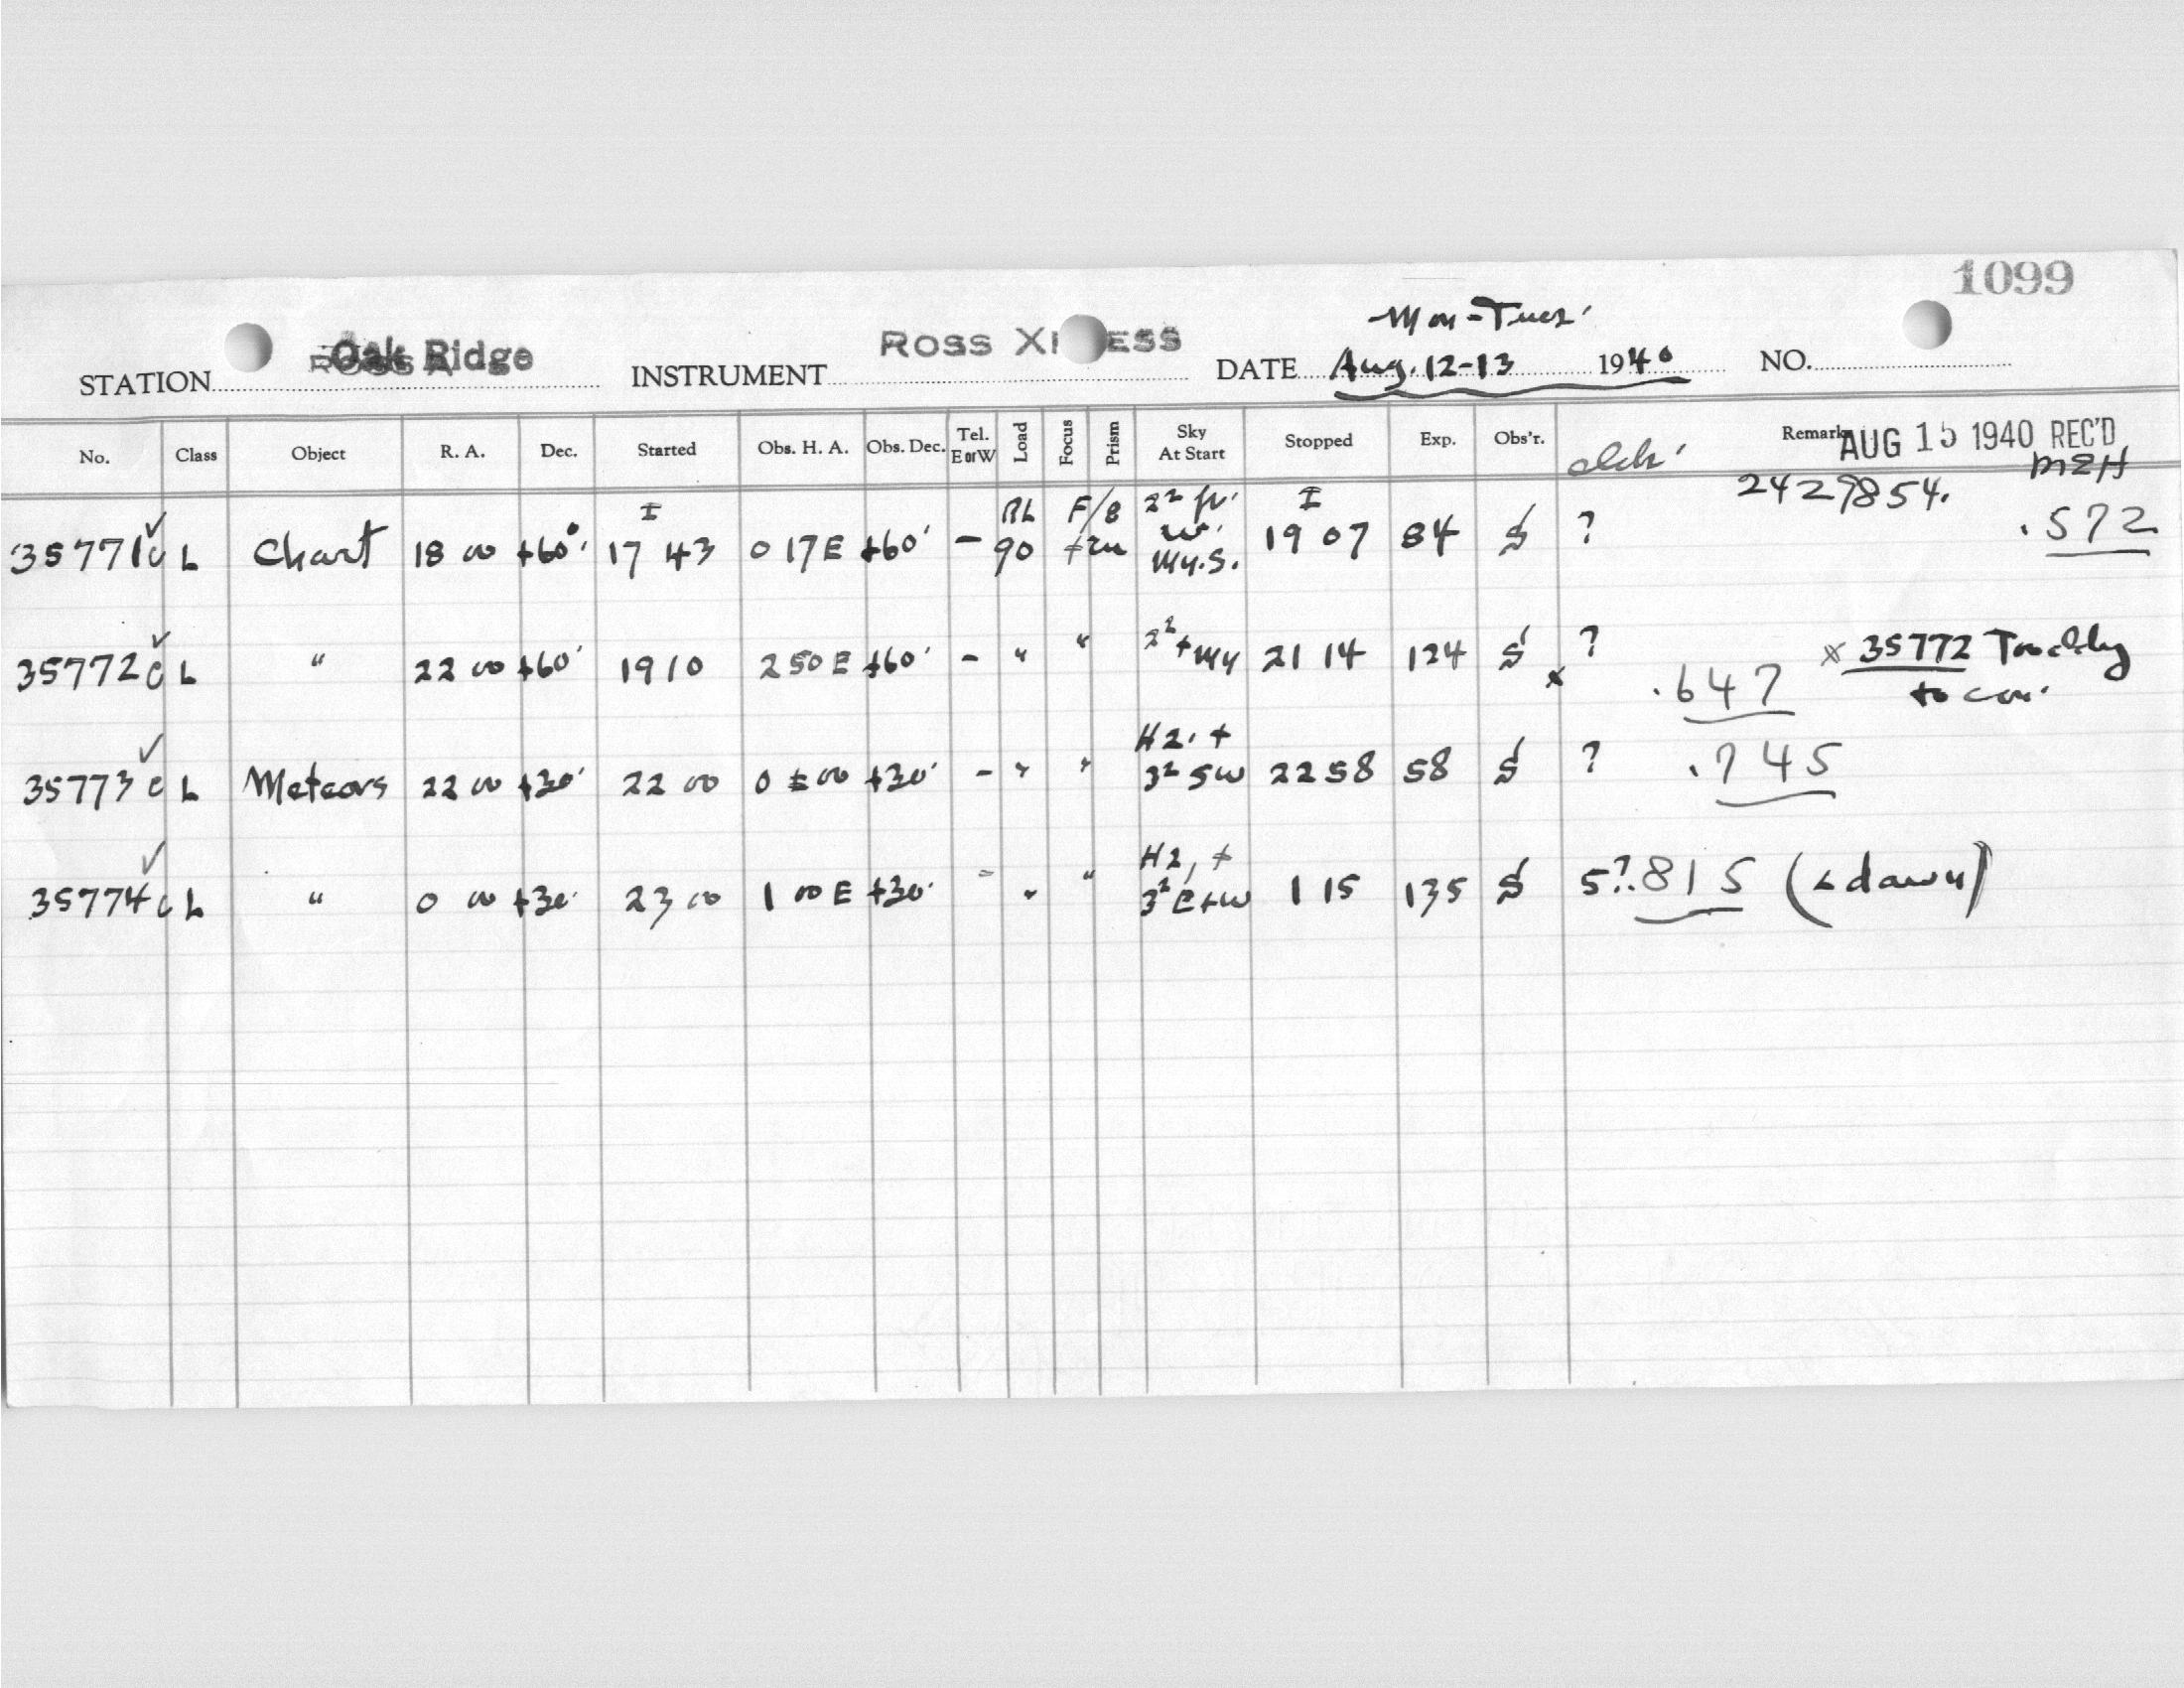 1099
Mon-Tues.
STATION Oak Ridge INSTRUMENT ROSS XPRESS DATE Aug. 12-13 1940 NO.
No. Class Object R. A. Dec. Started Obs. H. A. Obs. Dec. Tel. E or W Load Focus Prism Sky At Start Stopped Exp. Obs'r. Remark
AUG 15 1940 REC'D
MZH
2429854.
35771c L Chart 18 00 +60° I 17 43 0 17 E +60° - 90 F/8 2² W. My.S. I 19 07 84 S ? .572
35772c L " 22 00 +60° 19 10 2 50 E +60° - " " 2² + My 21 14 124 S ? x .647 x 35772
35773c L Meteors 22 00 +30° 22 00 0 ± 00 +30° - " " H2. + 3² SW 22 58 58 S ? .745
35774c L " 0 00 +30° 23 00 1 00 E +30° - " " H2, + 3² E+W 1 15 135 S 5? .815 (& dawn)